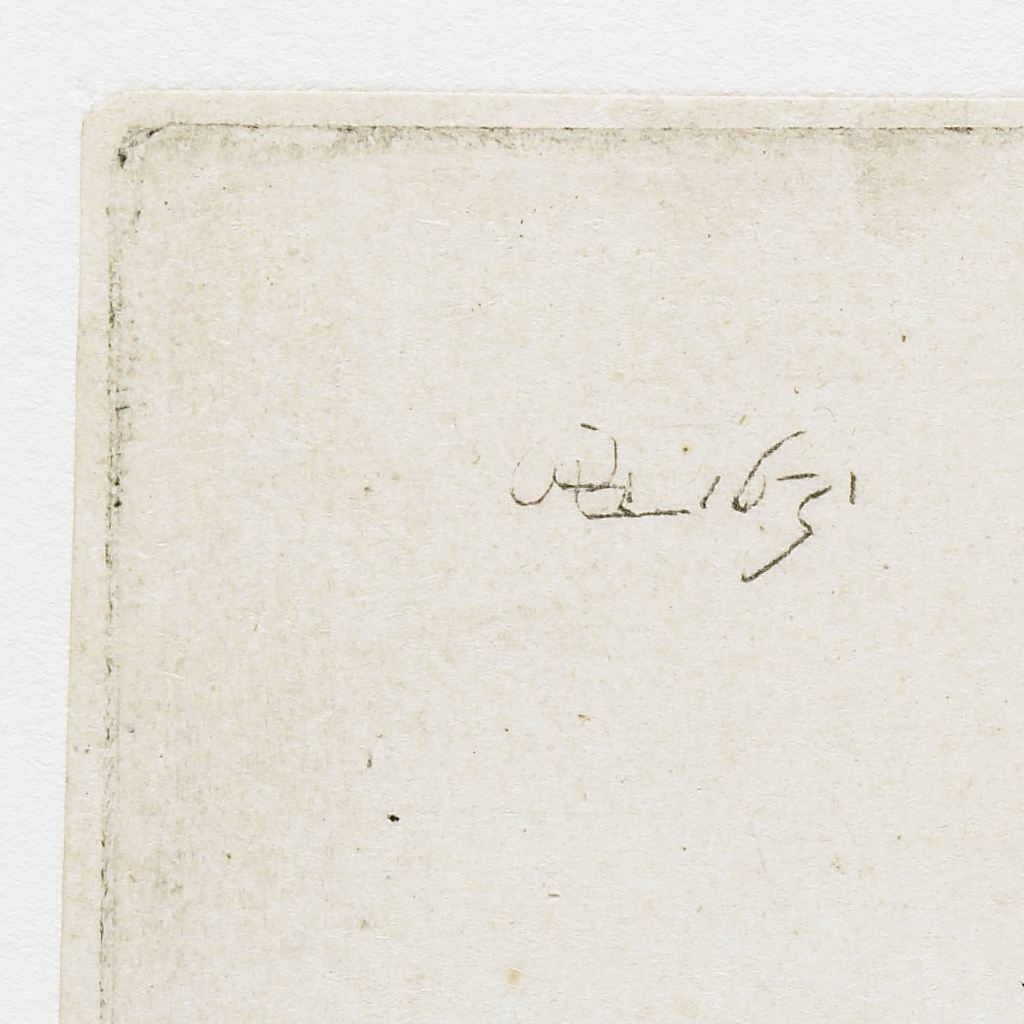 RHL 1631